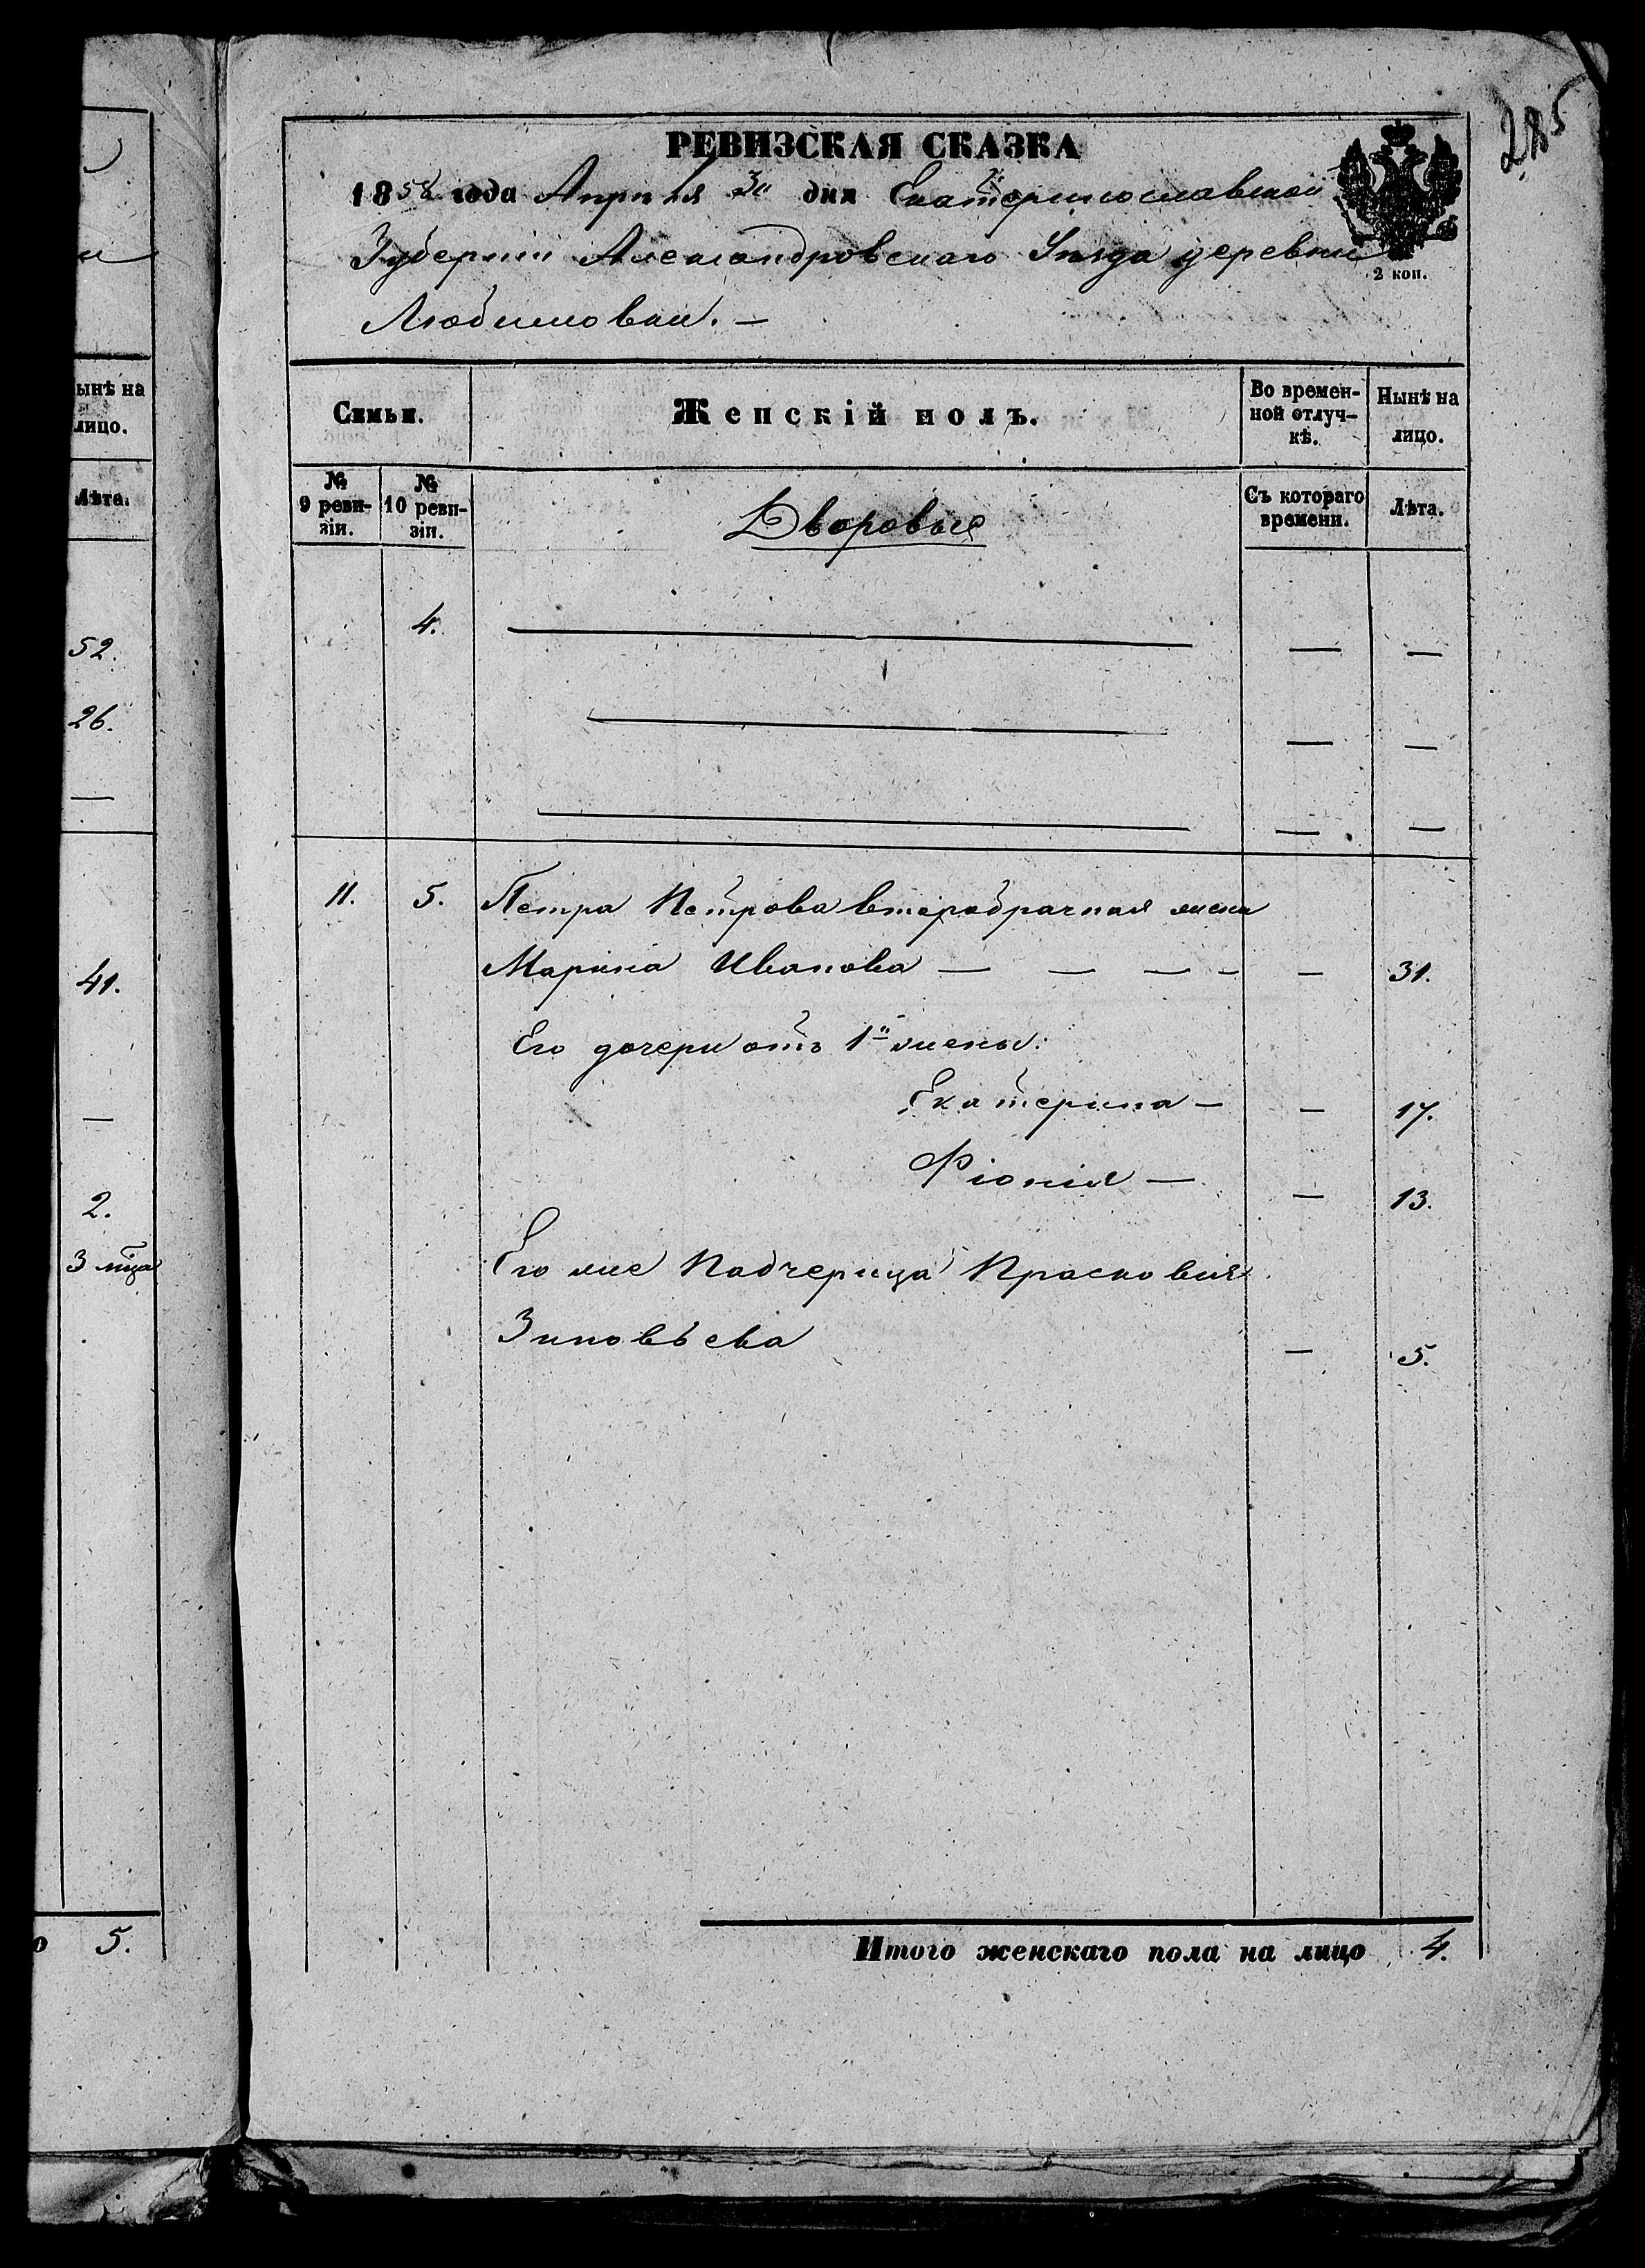 285
РЕВИЗСКАЯ СКАЗКА
1858 года Апреля 3" дня Екатеринославской
Губерніи Александровскаго Уѣзда деревни
2 коп.
Любимовки. —
ынѣ на
лицо.
Лѣта.
52.
26.
—
41.
—
2.
3 мѣца
о 5.
Семьи.
Женскій полъ.
Во времен-
ной отлуч-
кѣ.
Нынѣ на
лицо.
№
9 реви-
зіи.
№
10 реви-
зіи.
Дворовые
Съ котораго
времени.
Лѣта.
4. — —
— —
— —
11. 5. Петра Петрова второбрачная жена
Марина Иванова — — — - — 31.
Его дочери отъ 1й жены:
Екатерина — — 17.
Фіонія — — 13.
Его же Падчерица Прасковия
Зиновъева — 5.
Итого женскаго пола на лицо 4.